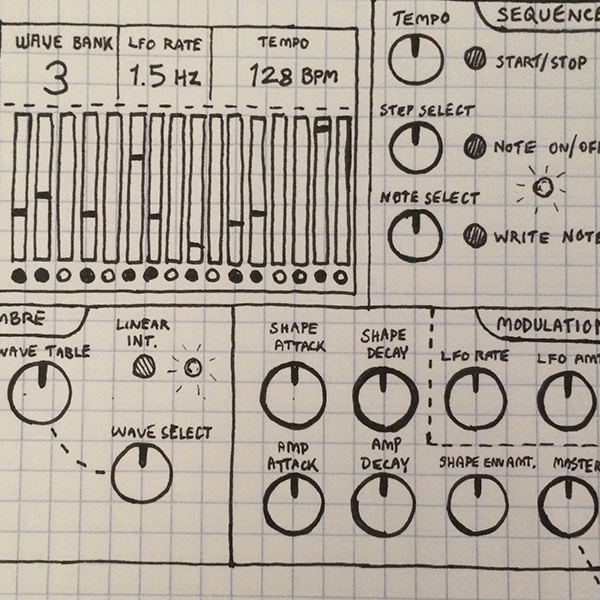 WAVE BANK
3
LFO RATE
1.5 HZ
TEMPO
128 BPM
SEQUENCE
TEMPO
START/STOP
STEP SELECT
NOTE ON/OF
NOTE SELECT
WRITE NOTE
MBRE
WAVE TABLE
LINEAR
INT.
WAVE SELECT
SHAPE
ATTACK
SHAPE
DECAY
AMP
ATTACK
AMP
DECAY
MODULATION
LFO RATE
LFO AMT
SHAPE ENV AMT.
MASTER